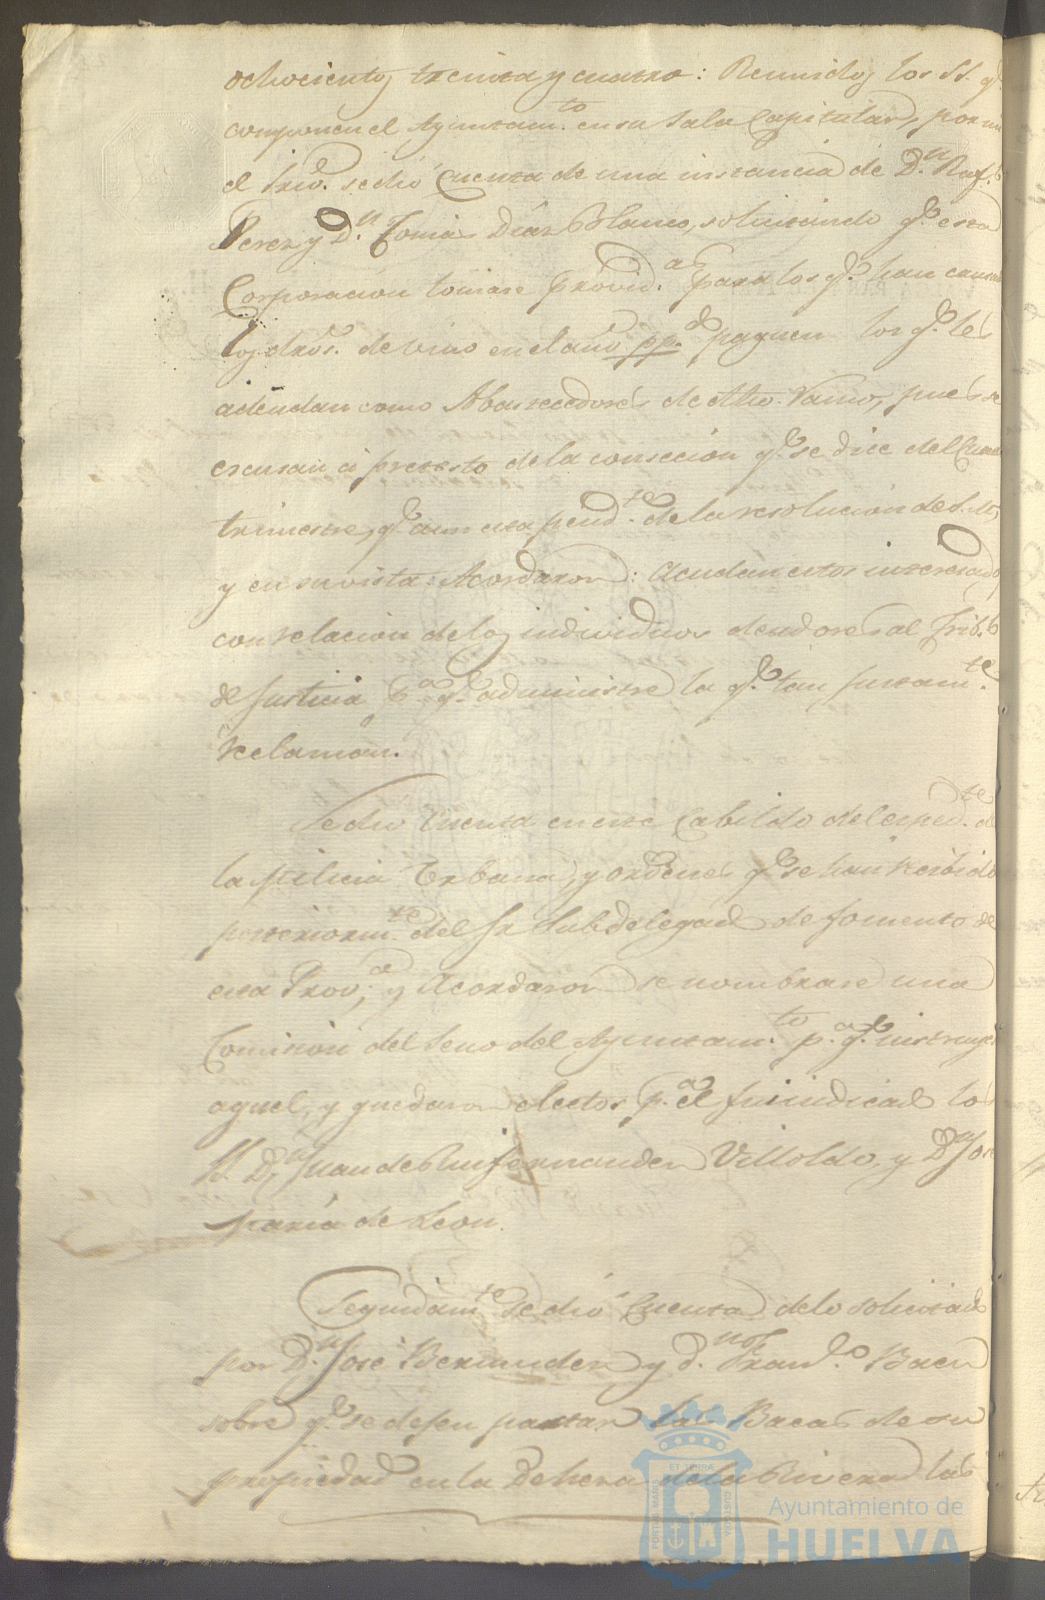 ochocientos treinta y cuatro: Reunidos los SS. qᵉ
componen el Ayuntamᵗᵒ en su Sala Capitular, por mi
el Srio. se dió Cuenta de una instancia de Dⁿ Raf.
Perez y Dⁿ Tomás Díaz Blanco, solicitando qᵉ esta
Corporacion tomase provid.ª para los qᵉ han
los dros. de vino en el año pp.ᵈᵒ paguen los qᵉ les
adeudan como Abastecedores de dho. Ramo, pues se
escusan á pretesto de la consecion qᵉ se dice del
trimestre, qᵉ aun esta pendᵗᵉ de la resolucion de S.
y en su vista: Acordaron: Acudan estos interesados
con relacion de los individuos deudores al Trib.
de Justicia p.ª qᵉ administre la qᵉ tan justamᵗᵉ
reclaman.
Se dio Cuenta en este Cabildo del espedᵗᵉ de
la Milicia Urbana, y ordenes qᵉ se han recibido
posteriormᵗᵉ del Sr Subdelegado de fomento de
esta Provª; y Acordaron se nombrase una
Comision del Seno del Ayuntamᵗᵒ p.ª qᵉ instruya
aquel, y quedaron electos p.ª el
SS. Dⁿ Juan de Fernandez Villoldo, y Dⁿ Jose
Maria de Leon.
Seguidamᵗᵉ se dió Cuenta de lo solicitado
por Dⁿ José Bermudez y D. Franᶜᵒ Baez
sobre qᵉ se dejen pastar las Bacas de su
propiedad en la Dehesa de la Rivera las
ET TERRAE
PORTUS MARIS
CUSTODIA
Ayuntamiento de
HUELVA